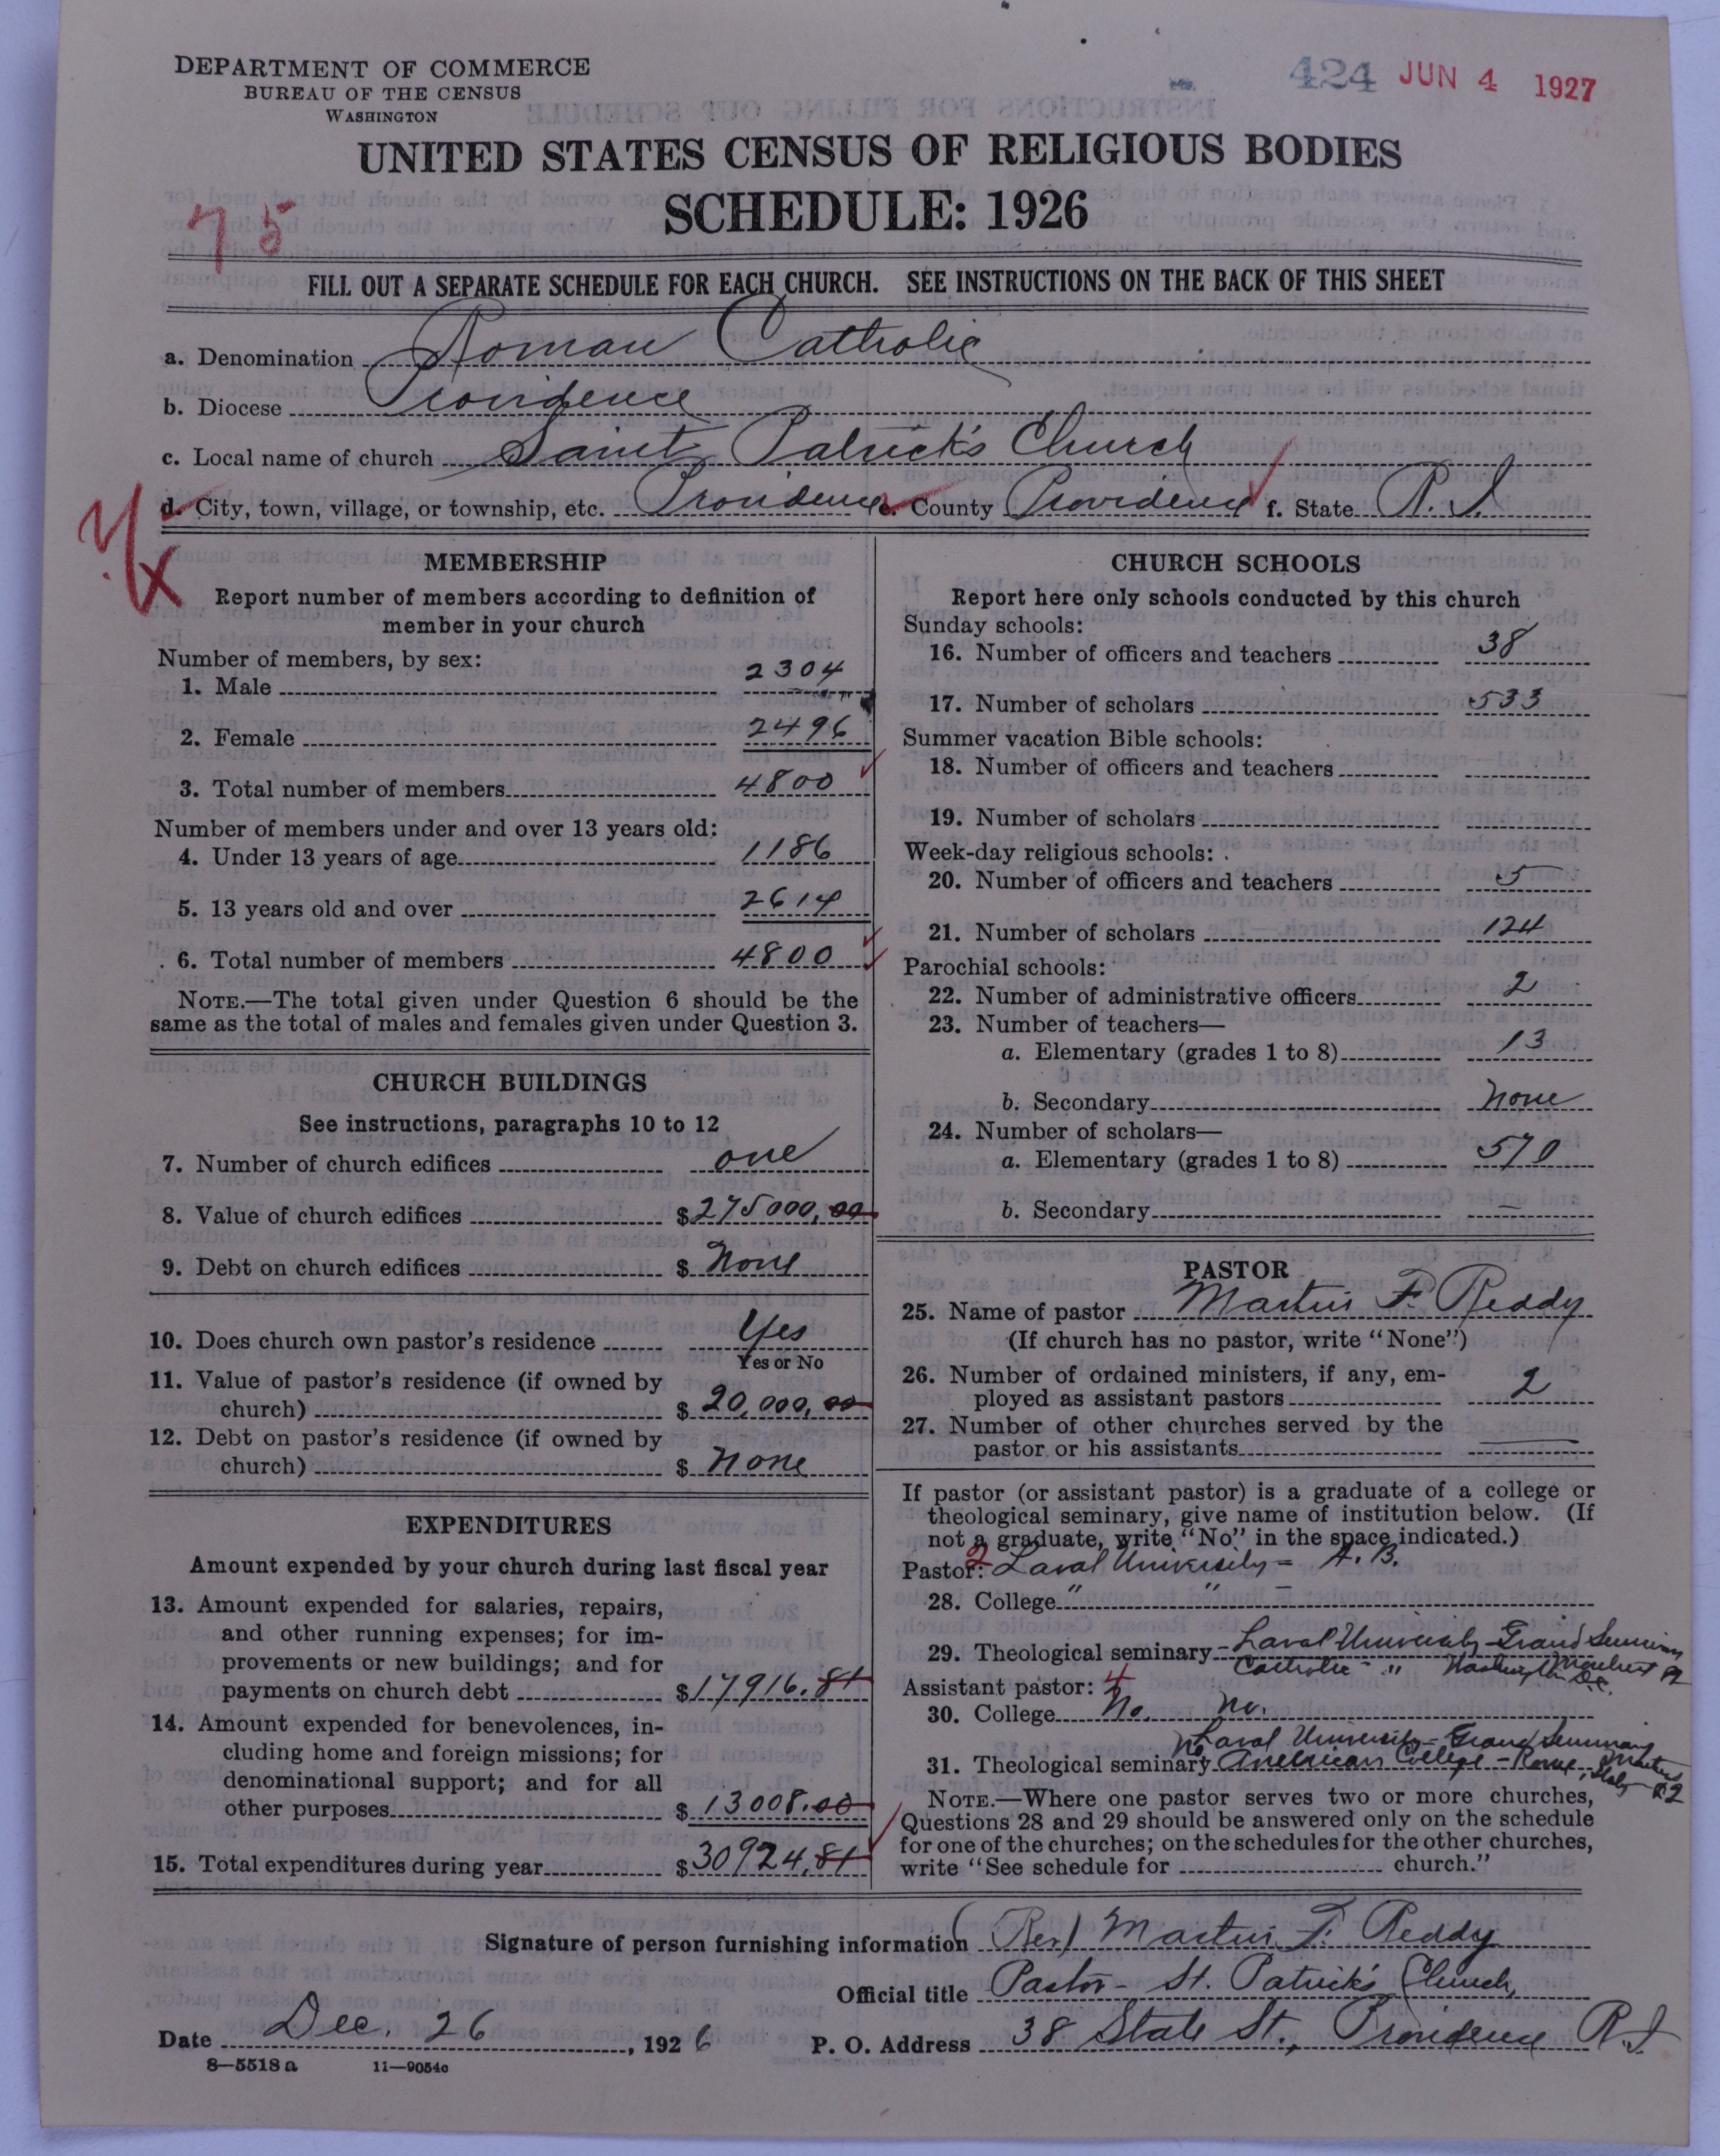 DEPARTMENT OF COMMERCE
BUREAU OF THE CENSUS
WASHINGTON
424 JUN 4 1927
UNITED STATES CENSUS OF RELIGIOUS BODIES
SCHEDULE: 1926
75
FILL OUT A SEPARATE SCHEDULE FOR EACH CHURCH. SEE INSTRUCTIONS ON THE BACK OF THIS SHEET
a. Denomination Roman Catholic
b. Diocese Providence
c. Local name of church Saint Patrick's Church
d. City, town, village, or township, etc. Providence e. County Providence f. State R. I.
MEMBERSHIP
Report number of members according to definition of
member in your church
Number of members, by sex:
1. Male 2304
2. Female 2496
3. Total number of members 4800
Number of members under and over 13 years old:
4. Under 13 years of age 1186
5. 13 years old and over 2614
6. Total number of members 4800
NOTE.—The total given under Question 6 should be the
same as the total of males and females given under Question 3.
CHURCH BUILDINGS
See instructions, paragraphs 10 to 12
7. Number of church edifices one
8. Value of church edifices $275000,00
9. Debt on church edifices $ None
10. Does church own pastor's residence Yes
Yes or No
11. Value of pastor's residence (if owned by
church) $ 20,000,00
12. Debt on pastor's residence (if owned by
church) $ None
EXPENDITURES
Amount expended by your church during last fiscal year
13. Amount expended for salaries, repairs,
and other running expenses; for im-
provements or new buildings; and for
payments on church debt $17916.81
14. Amount expended for benevolences, in-
cluding home and foreign missions; for
denominational support; and for all
other purposes $ 13008.00
15. Total expenditures during year $30924.81
CHURCH SCHOOLS
Report here only schools conducted by this church
Sunday schools:
16. Number of officers and teachers 38
17. Number of scholars 533
Summer vacation Bible schools:
18. Number of officers and teachers
19. Number of scholars
Week-day religious schools:
20. Number of officers and teachers 5
21. Number of scholars 124
Parochial schools:
22. Number of administrative officers 2
23. Number of teachers—
a. Elementary (grades 1 to 8) 13
b. Secondary None
24. Number of scholars—
a. Elementary (grades 1 to 8) 570
b. Secondary —
PASTOR
25. Name of pastor Martin F. Reddy
(If church has no pastor, write "None")
26. Number of ordained ministers, if any, em-
ployed as assistant pastors 2
27. Number of other churches served by the
pastor or his assistants —
If pastor (or assistant pastor) is a graduate of a college or
theological seminary, give name of institution below. (If
not a graduate, write "No" in the space indicated.)
Pastor: 2 Laval University - A. B.
28. College " " -
29. Theological seminary Laval University - Grand Seminary
Catholic " Washington D.C.
Assistant pastor: 4
30. College No. No.
Laval University - Grand Seminary
31. Theological seminary American College - Rome, Italy
NOTE.—Where one pastor serves two or more churches,
Questions 28 and 29 should be answered only on the schedule
for one of the churches; on the schedules for the other churches,
write "See schedule for church."
Signature of person furnishing information (Rev) Martin F. Reddy
Official title Pastor - St. Patrick's Church,
Date Dec. 26, 1926 P. O. Address 38 State St., Providence R.I
8—5518 a 11—9054c